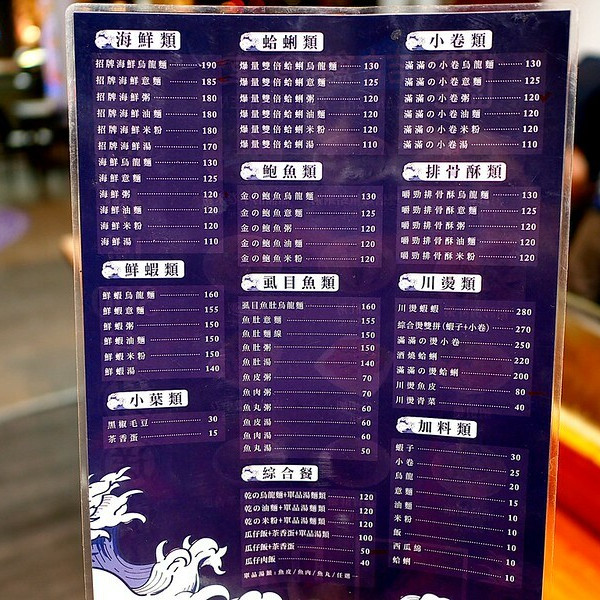 海鮮類
招牌海鮮烏龍麵 190
招牌海鮮意麵 185
招牌海鮮粥 180
招牌海鮮油麵 180
招牌海鮮米粉 180
招牌海鮮湯 170
海鮮烏龍麵 130
海鮮意麵 125
海鮮粥 120
海鮮油麵 120
海鮮米粉 120
海鮮湯 110
鮮蝦類
鮮蝦烏龍麵 160
鮮蝦意麵 155
鮮蝦粥 150
鮮蝦油麵 150
鮮蝦米粉 150
鮮蝦湯 140
小菜類
黑椒毛豆 30
茶香蛋 15
蛤蜊類
爆量雙倍蛤蜊烏龍麵 130
爆量雙倍蛤蜊意麵 125
爆量雙倍蛤蜊粥 120
爆量雙倍蛤蜊油麵 120
爆量雙倍蛤蜊米粉 120
爆量雙倍蛤蜊湯 110
鮑魚類
金の鮑魚烏龍麵 130
金の鮑魚意麵 125
金の鮑魚粥 120
金の鮑魚油麵 120
金の鮑魚米粉 120
虱目魚類
虱目魚肚烏龍麵 160
魚肚意麵 155
魚肚麵線 150
魚肚粥 150
魚肚湯 140
魚皮粥 70
魚肉粥 70
魚丸粥 60
魚皮湯 60
魚肉湯 60
魚丸湯 50
綜合餐
乾の烏龍麵+單品湯麵類 120
乾の油麵+單品湯麵類 120
乾の米粉+單品湯麵類 120
瓜仔飯+茶香蛋+單品湯類 100
瓜仔飯+茶香蛋 50
瓜仔肉飯 40
單品湯類:魚皮/魚肉/魚丸/任選一
小卷類
滿滿の小卷烏龍麵 130
滿滿の小卷意麵 125
滿滿の小卷粥 120
滿滿の小卷油麵 120
滿滿の小卷米粉 120
滿滿の小卷湯 110
排骨酥類
嚼勁排骨酥烏龍麵 130
嚼勁排骨酥意麵 125
嚼勁排骨酥粥 120
嚼勁排骨酥油麵 120
嚼勁排骨酥米粉 120
川燙類
川燙蝦蝦 280
綜合燙雙拼(蝦子+小卷) 270
滿滿の燙小卷 250
酒燒蛤蜊 220
滿滿の燙蛤蜊 200
川燙魚皮 80
川燙青菜 40
加料類
蝦子 30
小卷 25
烏龍 20
意麵 15
油麵 10
米粉 10
飯 10
西瓜綿 10
蛤蜊 10